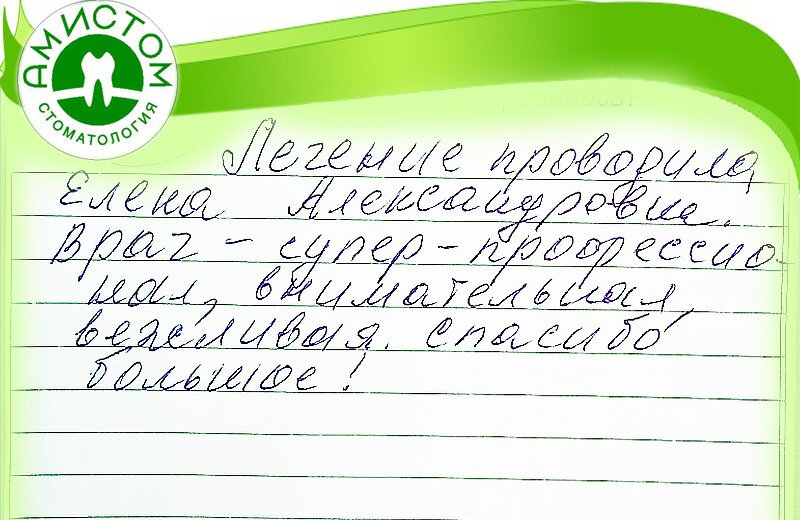 АМИСТОМ
СТОМАТОЛОГИЯ
Лечение проводила
Елена Александровна.
Врач – супер – профессио-
нал, внимательная,
вежливая. Спасибо
большое!